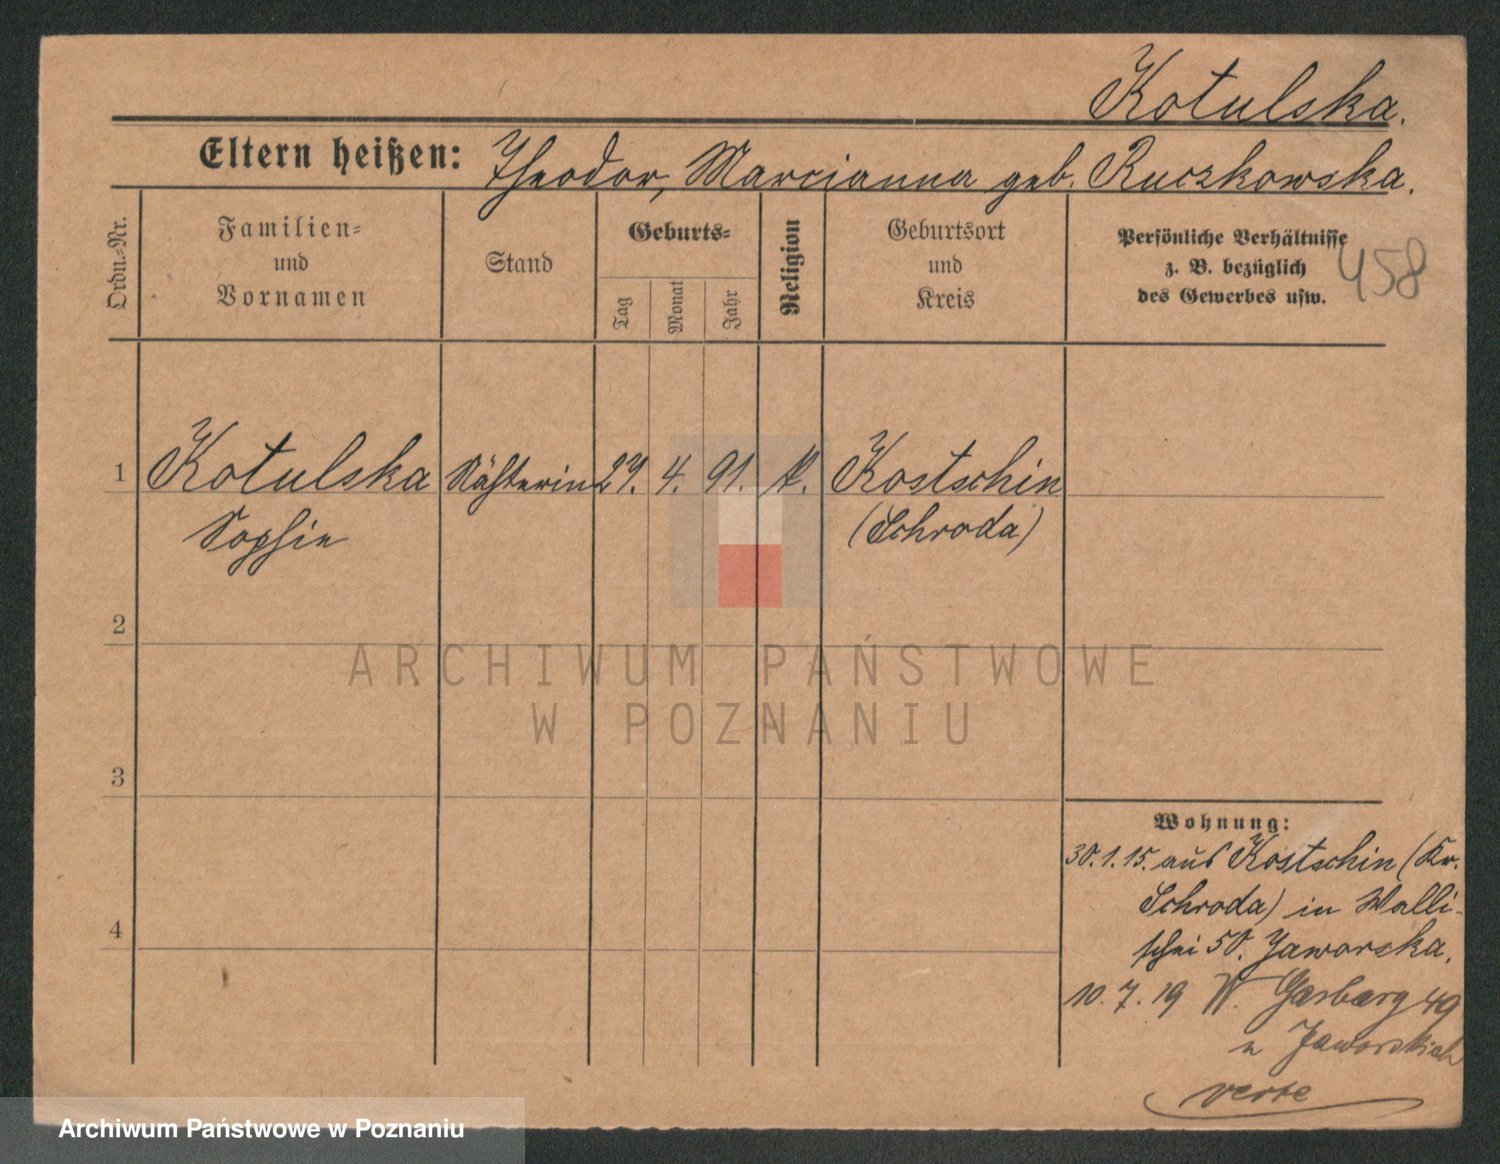 Kotulska.
Eltern heißen: Theodor, Marcianna geb. Ruczkowska.
Ordn.-Nr.
Familien-
und
Vornamen
Stand
Geburts-
Tag
Monat
Jahr
Religion
Geburtsort
und
Kreis
Persönliche Verhältnisse
z. B. bezüglich
des Gewerbes usw.
458
1 Kotulska Nähterin 27. 4. 91. k. Kostschin
Sophie (Schroda)
2
3
4
Wohnung:
30.1.15. aus Kostschin (Kr.
Schroda) in Walli-
schei 50. Jaworska.
10.7.19 W. Garbary 49
u Jaworskich
verte
ARCHIWUM PAŃSTWOWE
W POZNANIU
Archiwum Państwowe w Poznaniu